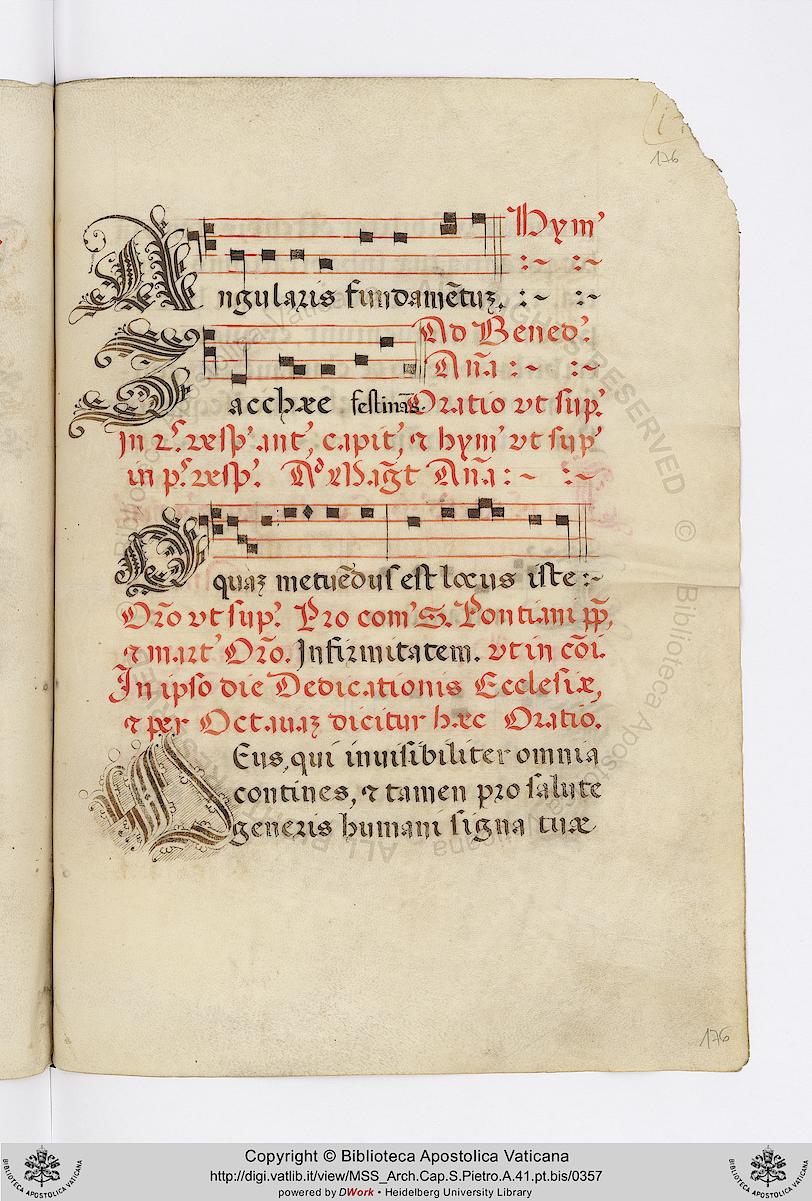 176
Hym’
:~ :~
Angularis fundamētuz. :~ :~
Ad Bened’.
Añа :~ :~
Zacchæe festinās. Oratio vt sup.
In 2.º resp’. ant’, capit’, ⁊ hym’ vt sup’
in p.º resp’. Ad Magt Aña :~ :~
O quaz metuēdus est locus iste :~
Orõ vt sup’. Pro com’ S. Pontiani pp̄,
⁊ mart’ Orõ. Infirmitatem. vt in cõi.
In ipso die Dedicationis Ecclesiæ,
⁊ per Octauaz dicitur hæc Oratio.
DEus, qui inuisibiliter omnia
contines, ⁊ tamen pro salute
generis humani signa tuæ
176
Copyright © Biblioteca Apostolica Vaticana
http://digi.vatlib.it/view/MSS_Arch.Cap.S.Pietro.A.41.pt.bis/0357
powered by DWork • Heidelberg University Library